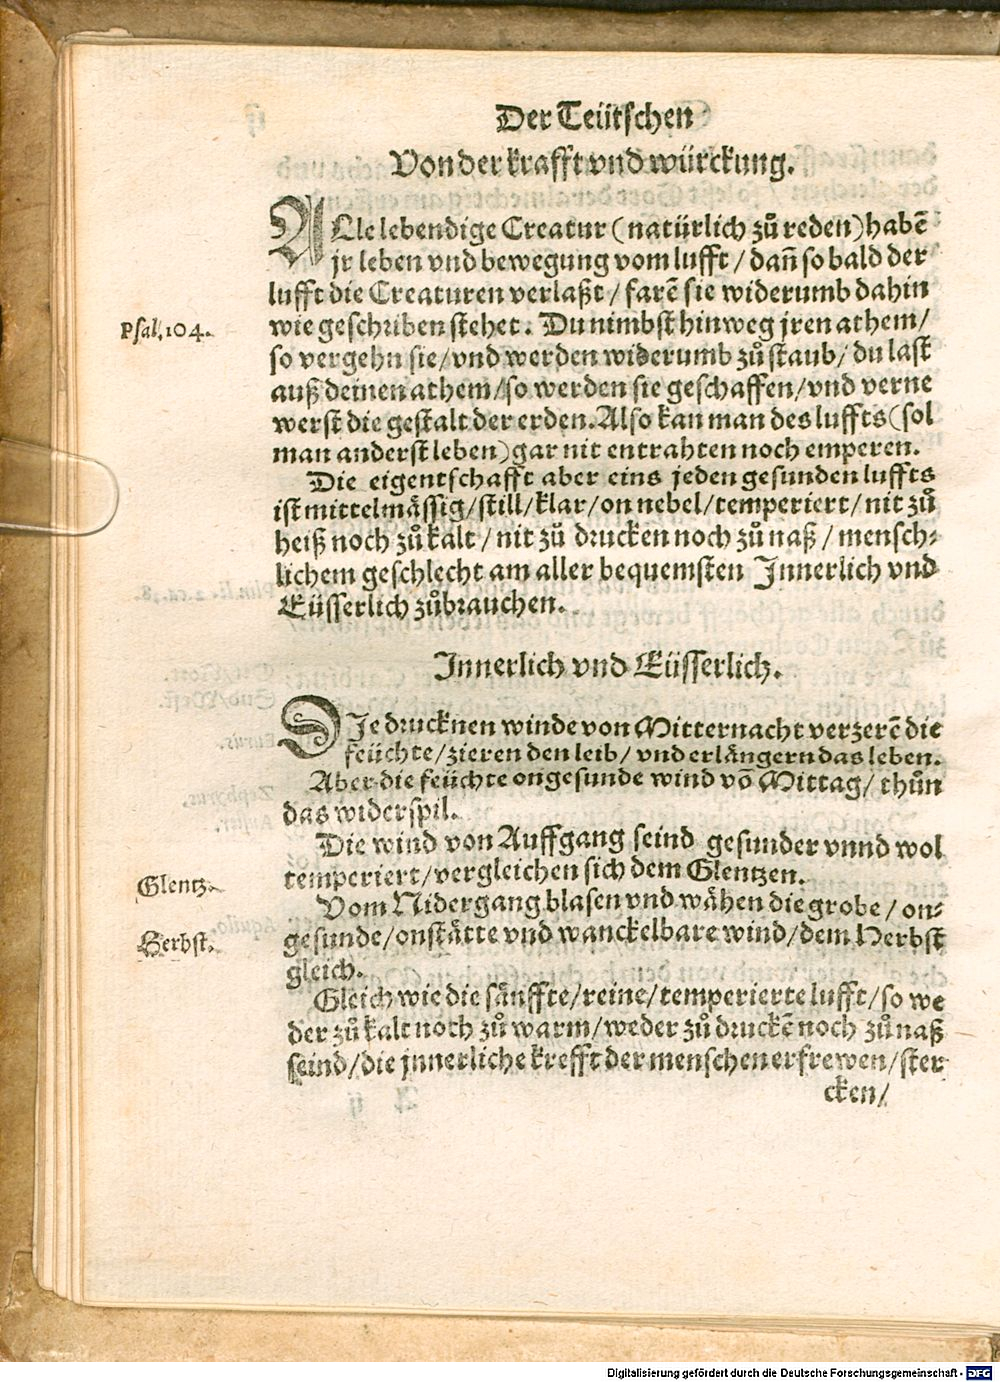 Der Teütschen
Von der krafft vnd würckung.
ALle lebendige Creatur (natürlich zů reden) habē
jr leben vnd bewegung vom lufft / dañ so bald der
lufft die Creaturen verlaßt / farē sie widerumb dahin
Psal. 104. wie geschriben stehet. Du nimbst hinweg jren athem/
so vergehn sie/vnd werden widerumb zů staub/ du last
auß deinen athem/so werden sie geschaffen/vnd verne
werst die gestalt der erden. Also kan man des luffts (sol
man anderst leben) gar nit entrahten noch emperen.
Die eigentschafft aber eins jeden gesunden luffts
ist mittelmässig/still/klar/on nebel/temperiert/ nit zů
heiß noch zů kalt / nit zů drucken noch zů naß / mensch-
lichem geschlecht am aller bequemsten Innerlich vnd
Eüsserlich zůbrauchen.
Innerlich vnd Eüsserlich.
DIe drucknen winde von Mitternacht verzerē die
feüchte/zieren den leib/ vnd erlängern das leben.
Aber die feüchte ongesunde wind vō Mittag/ thůn
das widerspil.
Die wind von Auffgang seind gesunder vnnd wol
Glentz. temperiert/vergleichen sich dem Glentzen.
Vom Nidergang blasen vnd wähen die grobe / on-
Herbst. gesunde/onstätte vnd wanckelbare wind/dem Herbst
gleich.
Gleich wie die sänffte/reine/temperierte lufft/so we
der zů kalt noch zů warm/weder zů druckē noch zů naß
seind/die jnnerliche krefft der menschen erfrewen/ster
cken/
Digitalisierung gefördert durch die Deutsche Forschungsgemeinschaft - DFG